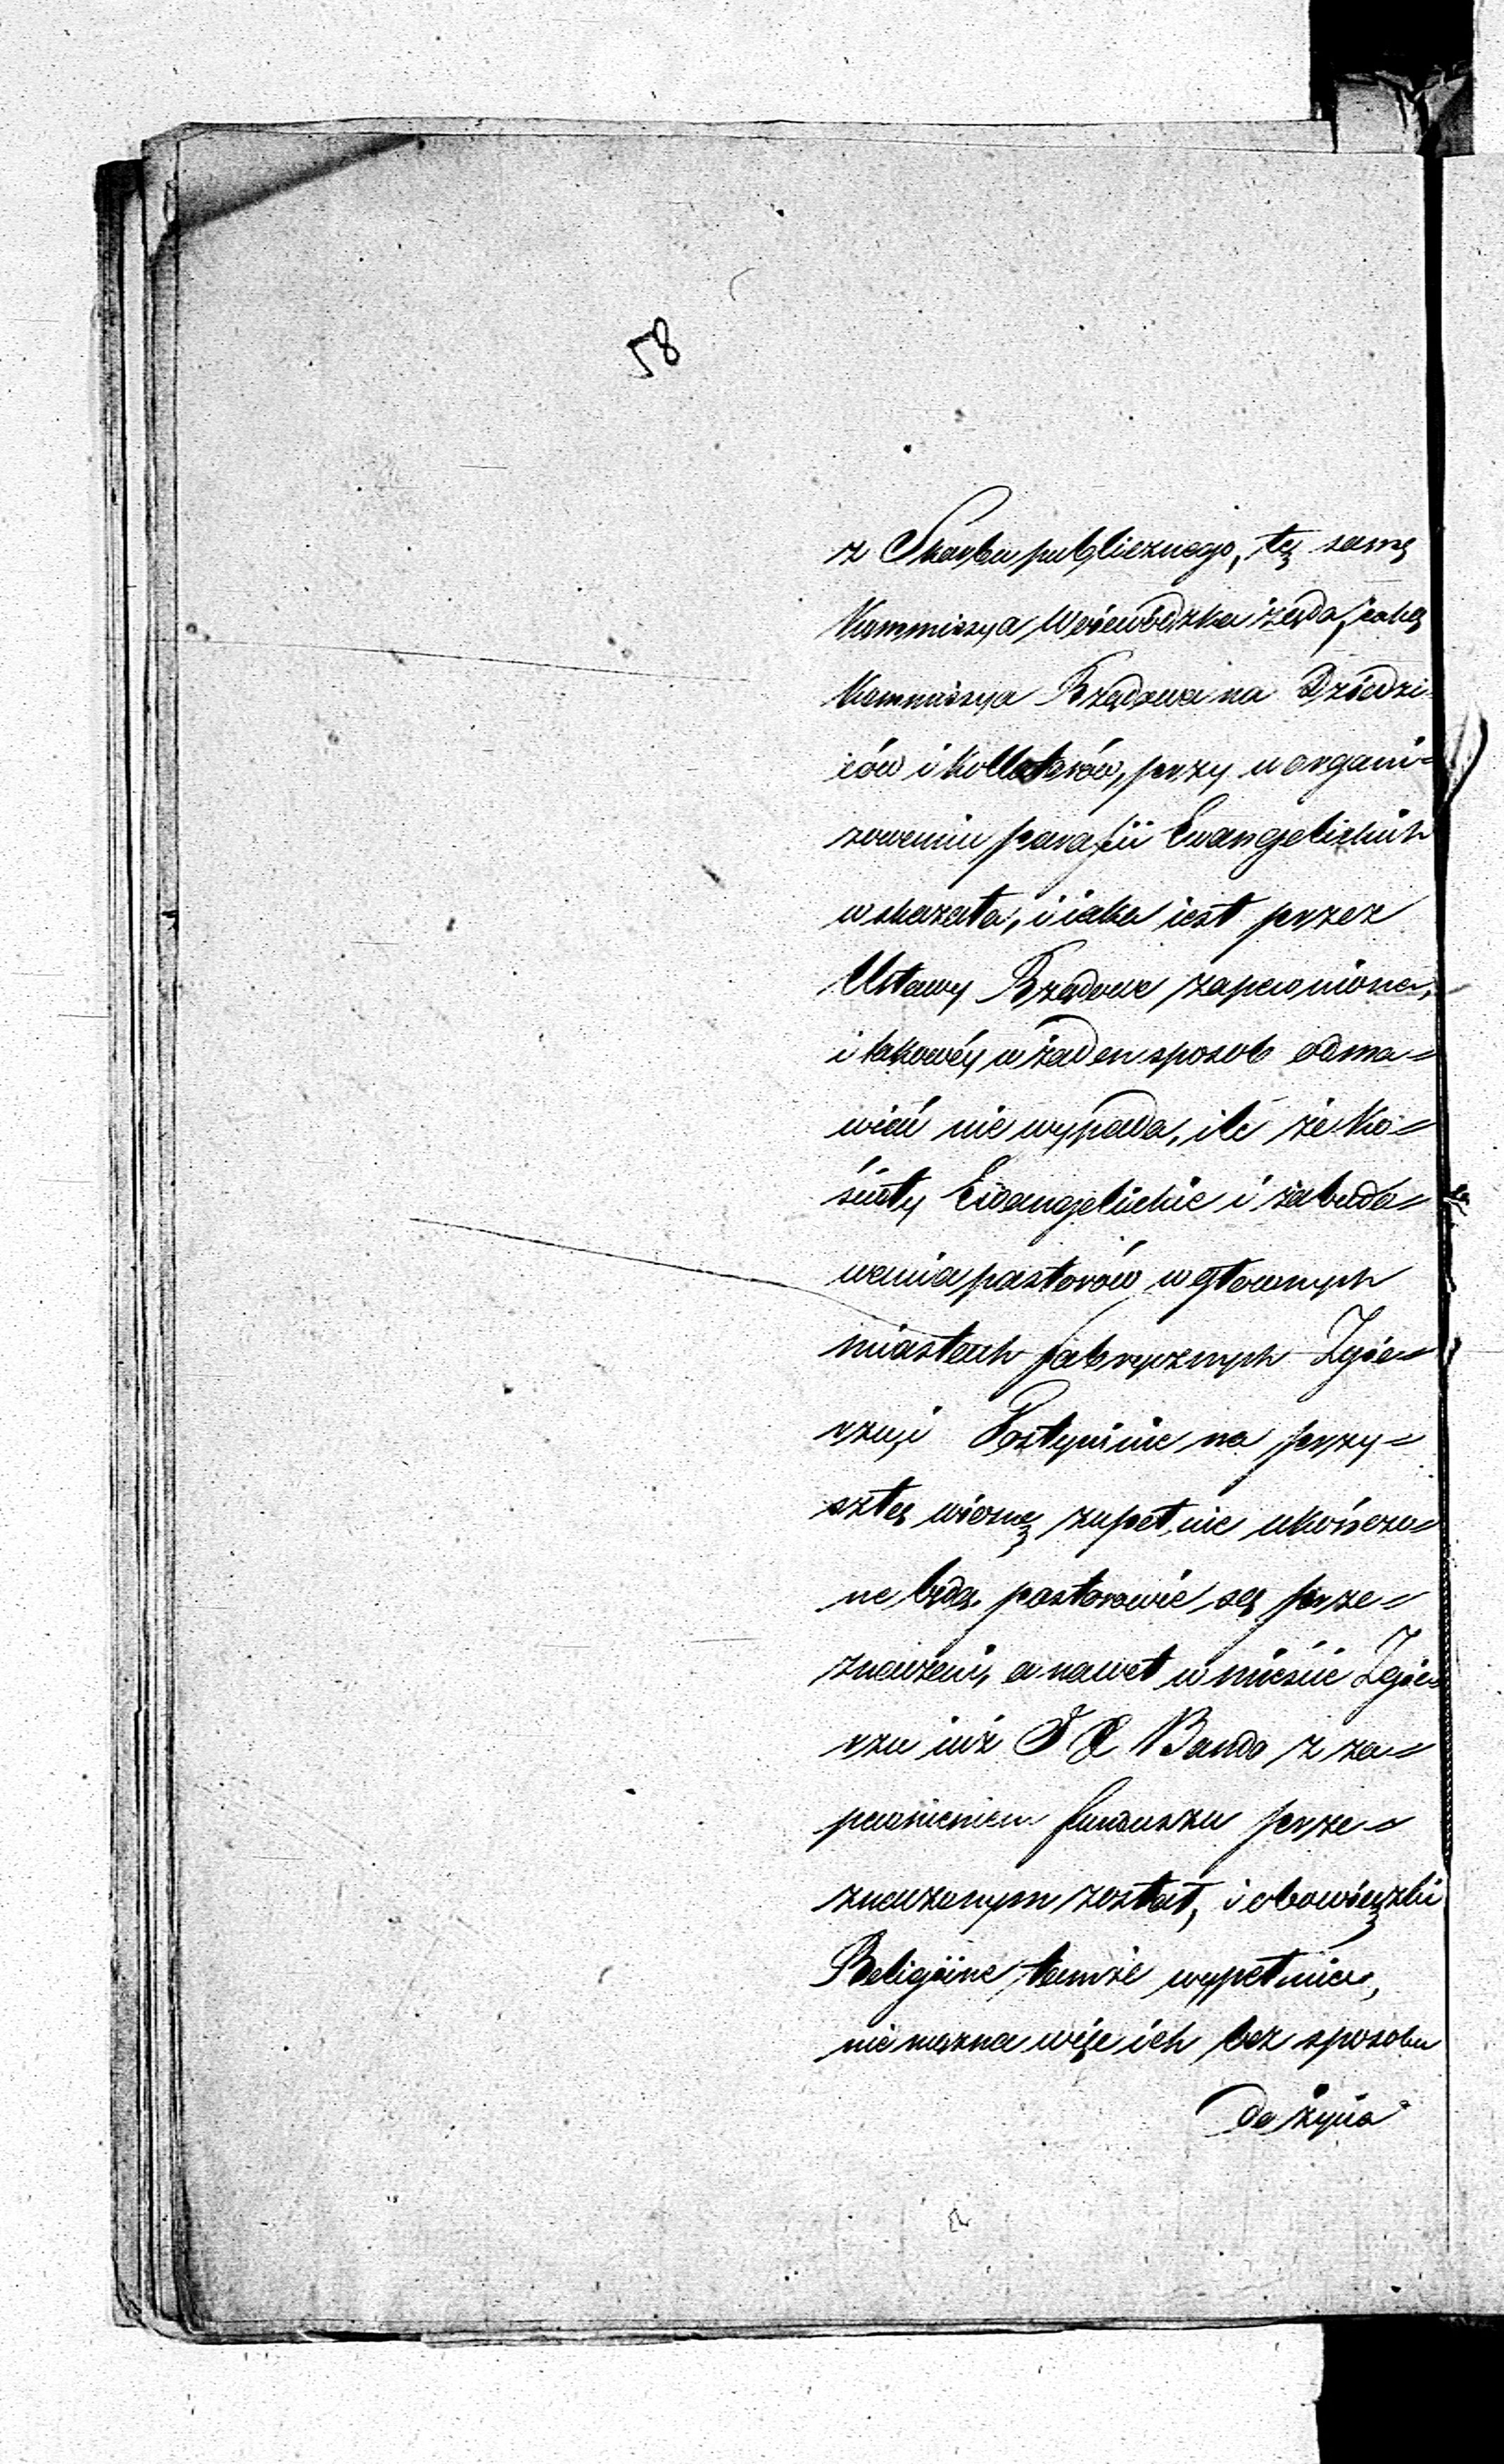 58
z Skarbu publicznego, tę samę
Kommissya Woiewódzka żąda, iaką
Kommissya Rządowa na Dziedzi-
ców i Kollatorów, przy uorgani-
zowaniu parafii Ewangelickich
wskazała, i iaka iest przez
Ustawy Rządowe zapewniona,
i takowéy w żaden sposob odma-
wiać nie wypada, ile że Ko-
ścioły Ewangelickie i zabudo-
wania pastorów w głownych
miastach fabrycznych Zgie-
rzu i Gostyninie na przy-
szłą wiosnę zupełnie ukończo-
ne będą, pastorowie są prze-
znaczeni, a nawet w mieście Zgie-
rzu iuż Bando z za-
pewnieniem funduszu prze-
znaczonym został, i obowiązki
Religiine tamże wypełnia,
nie można więc ich bez sposobu
do życia